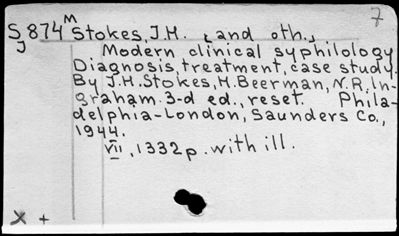 7
S874 M Stokes, J.H. [and oth.]
J Modern clinical syphilology
Diagnosis, treatment, case study.
By J.H. Stokes, H. Beerman, N.R. In-
graham. 3-d ed., reset. Phila-
delphia-London, Saunders Co.,
1944.
VII, 1332 p. with ill.
X +